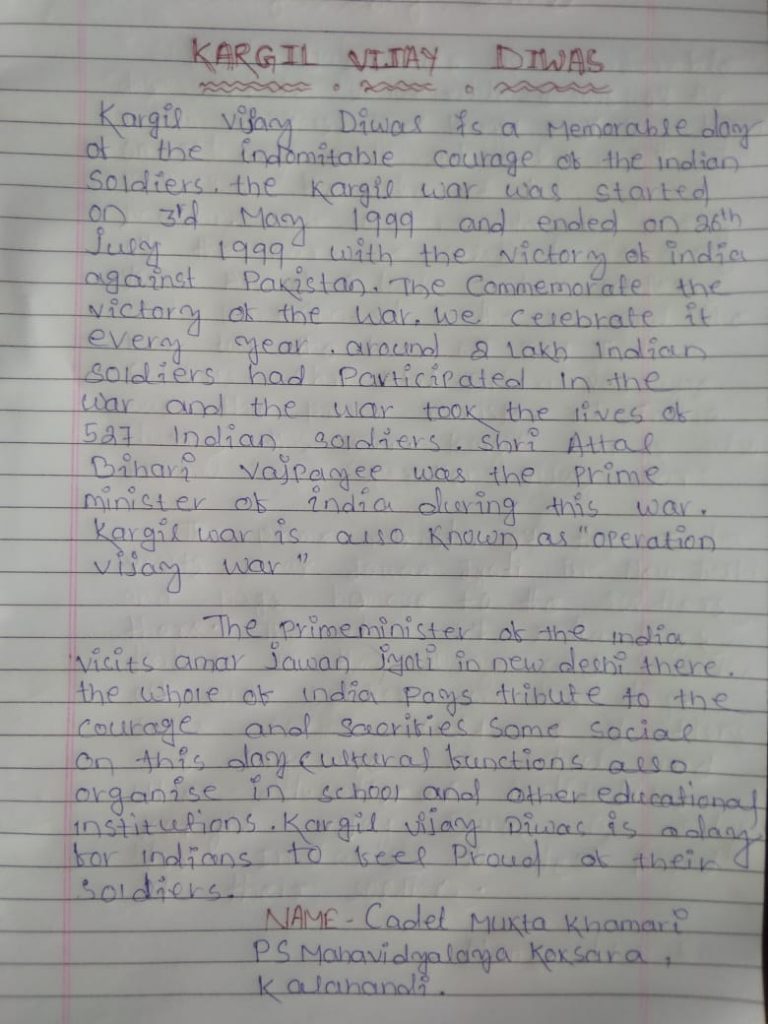 KARGIL VIJAY DIWAS
Kargil Vijay Diwas is a Memorable day
of the indomitable courage of the indian
Soldiers. the Kargil war was started
on 3rd May 1999 and ended on 26th
July 1999 with the victory of india
against Pakistan. The Commemorate the
victory of the war. we celebrate it
every year. around 2 lakh Indian
soldiers had participated in the
war and the war took the lives of
527 Indian soldiers. Shri Attal
Bihari Vajpayee was the prime
minister of india during this war.
Kargil war is also known as "operation
vijay war"
The primeminister of the india
visits amar jawan jyoti in new delhi there.
the whole of india pays tribute to the
courage and sacrifies some social
on this day cultural functions also
organise in school and other educational
institutions. Kargil Vijay Diwas is a day
for indians to feel Proud of their
soldiers.
NAME - Cadet Mukta Khamari
PS Mahavidyalaya Koksara,
Kalahandi.